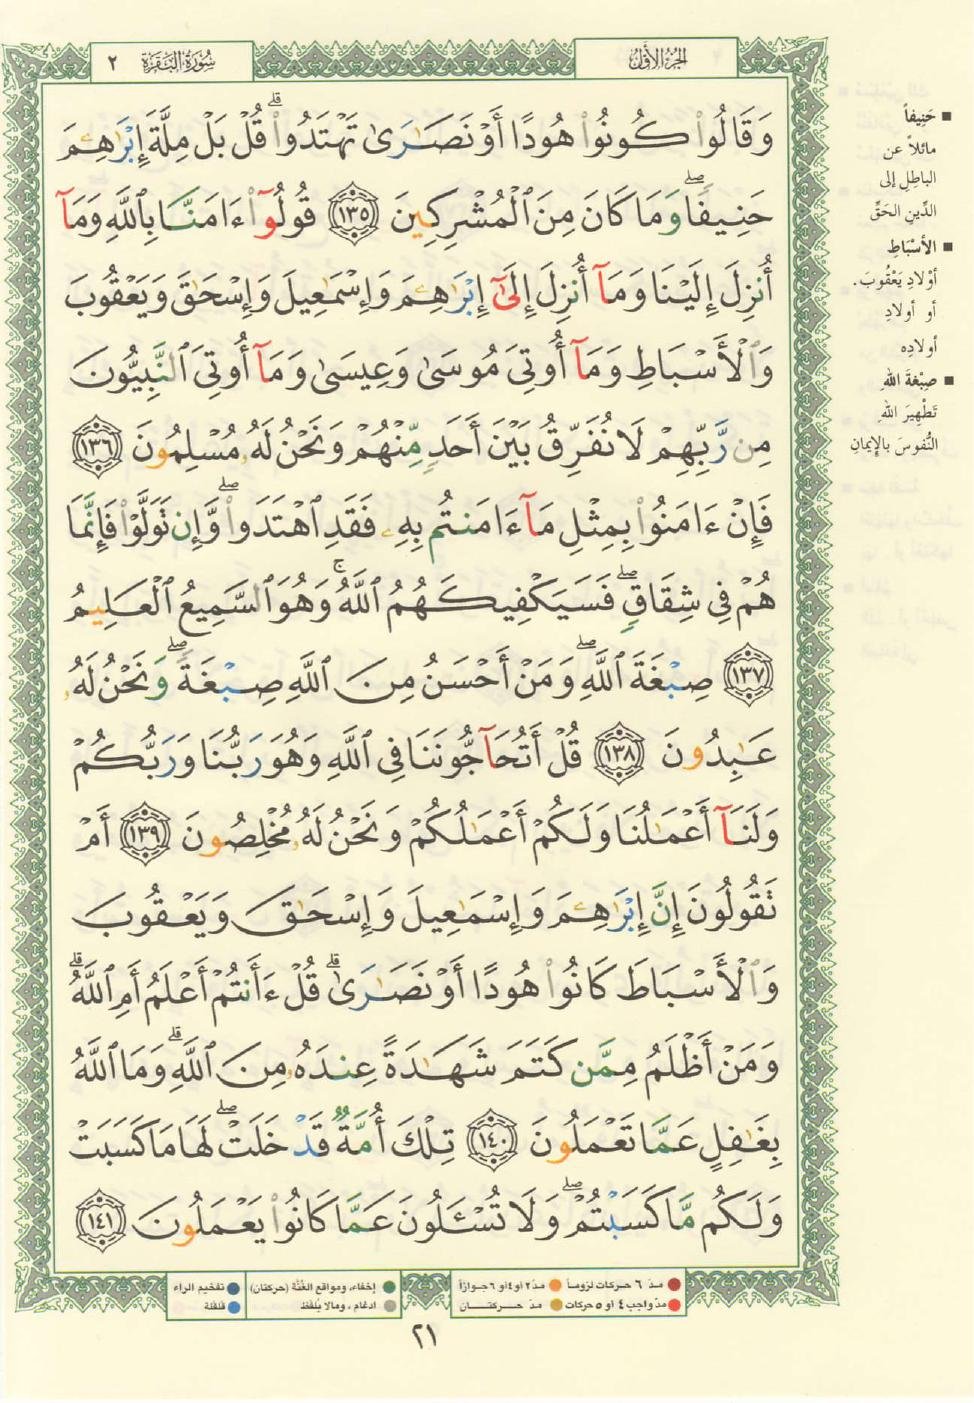 سُورَةُ البَقَرَة ٢
الجُزءُ الأَوَّل
وَقَالُوا۟ كُونُوا۟ هُودًا أَوْ نَصَـٰرَىٰ تَهْتَدُوا۟ ۗ قُلْ بَلْ مِلَّةَ إِبْرَٰهِـۧمَ
حَنِيفًا ۖ وَمَا كَانَ مِنَ ٱلْمُشْرِكِينَ ١٣٥ قُولُوٓا۟ ءَامَنَّا بِٱللَّهِ وَمَآ
أُنزِلَ إِلَيْنَا وَمَآ أُنزِلَ إِلَىٰٓ إِبْرَٰهِـۧمَ وَإِسْمَـٰعِيلَ وَإِسْحَـٰقَ وَيَعْقُوبَ
وَٱلْأَسْبَاطِ وَمَآ أُوتِىَ مُوسَىٰ وَعِيسَىٰ وَمَآ أُوتِىَ ٱلنَّبِيُّونَ
مِن رَّبِّهِمْ لَا نُفَرِّقُ بَيْنَ أَحَدٍ مِّنْهُمْ وَنَحْنُ لَهُۥ مُسْلِمُونَ ١٣٦
فَإِنْ ءَامَنُوا۟ بِمِثْلِ مَآ ءَامَنتُم بِهِۦ فَقَدِ ٱهْتَدَوا۟ ۖ وَّإِن تَوَلَّوْا۟ فَإِنَّمَا
هُمْ فِى شِقَاقٍ ۖ فَسَيَكْفِيكَهُمُ ٱللَّهُ ۚ وَهُوَ ٱلسَّمِيعُ ٱلْعَلِيمُ
١٣٧ صِبْغَةَ ٱللَّهِ ۖ وَمَنْ أَحْسَنُ مِنَ ٱللَّهِ صِبْغَةً ۖ وَنَحْنُ لَهُۥ
عَـٰبِدُونَ ١٣٨ قُلْ أَتُحَآجُّونَنَا فِى ٱللَّهِ وَهُوَ رَبُّنَا وَرَبُّكُمْ
وَلَنَآ أَعْمَـٰلُنَا وَلَكُمْ أَعْمَـٰلُكُمْ وَنَحْنُ لَهُۥ مُخْلِصُونَ ١٣٩ أَمْ
تَقُولُونَ إِنَّ إِبْرَٰهِـۧمَ وَإِسْمَـٰعِيلَ وَإِسْحَـٰقَ وَيَعْقُوبَ
وَٱلْأَسْبَاطَ كَانُوا۟ هُودًا أَوْ نَصَـٰرَىٰ ۗ قُلْ ءَأَنتُمْ أَعْلَمُ أَمِ ٱللَّهُ ۗ
وَمَنْ أَظْلَمُ مِمَّن كَتَمَ شَهَـٰدَةً عِندَهُۥ مِنَ ٱللَّهِ ۗ وَمَا ٱللَّهُ
بِغَـٰفِلٍ عَمَّا تَعْمَلُونَ ١٤٠ تِلْكَ أُمَّةٌ قَدْ خَلَتْ ۖ لَهَا مَا كَسَبَتْ
وَلَكُم مَّا كَسَبْتُمْ ۖ وَلَا تُسْـَٔلُونَ عَمَّا كَانُوا۟ يَعْمَلُونَ ١٤١
حَنِيفاً
مائلاً عن
الباطِلِ إلى
الدِّينِ الحَقِّ
الأسْبَاطِ
أوْلادِ يَعْقُوبَ.
أو أولادِ
أولادِه
صِبْغَةَ اللهِ
تَطْهِيرَ اللهِ
النُّفوسَ بالإيمانِ
مدّ ٦ حركات لزوماً
مدّ ٢ أو ٤ أو ٦ جوازاً
مدّ واجب ٤ أو ٥ حركات
مدّ حركتان
إخفاء، ومواقع الغُنَّة (حركتان)
ادغام، ومالا يُلفَظ
تفخيم الراء
قلقلة
٢١